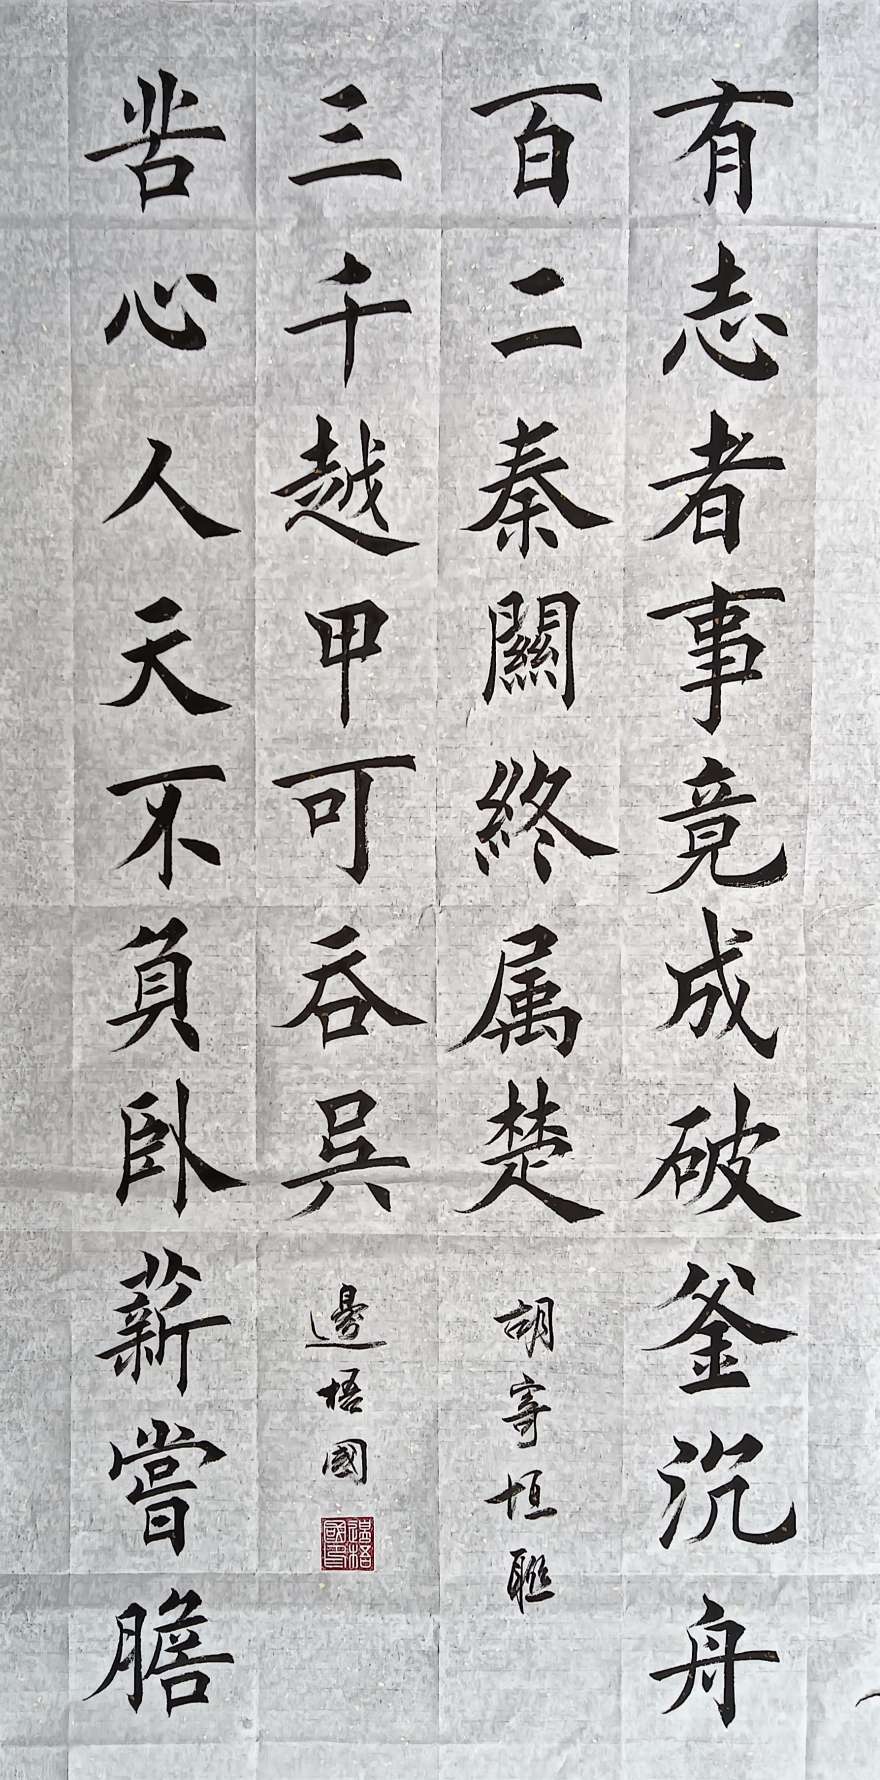 有志者事竟成破釜沉舟
百二秦關終属楚
胡寄垣聯
苦心人天不負臥薪嘗膽
三千越甲可吞吳
邊梧國
邊梧國印